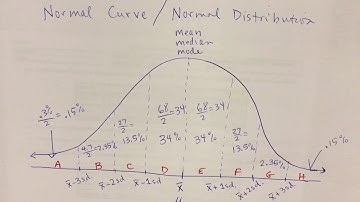 Normal Curve / Normal Distribution
mean
median
mode
.3%/2 = .15%
4.7/2 = 2.35%
27/2 =
13.5%
68/2 = 34
34%
68/2 = 34
34%
27/2 =
13.5%
2.35%
.15%
A B C D E F G H
x̄-3sd x̄-2sd x̄-1sd x̄ x̄+1sd x̄+2sd x̄+3sd